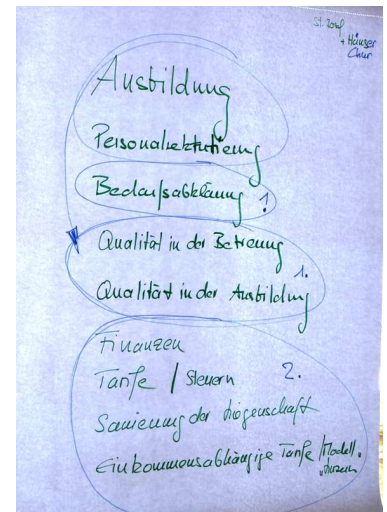 St. Josef
+ Häuser
Chur
Ausbildung
Personalrekrutierung
Bedarfsabklärung 1
Qualität in der Betreuung
1.
Qualität in der Ausbildung
Finanzen
Tarife / Steuern 2.
Sanierung der Liegenschaft
Einkommensabhängige Tarife / Modell